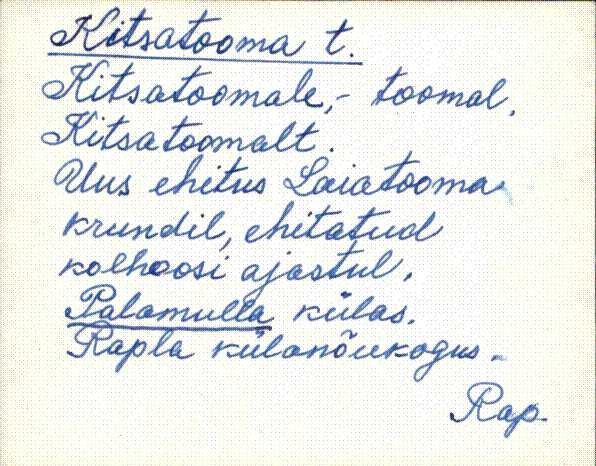 Kitsatooma t.
Kitsatoomale, - toomal,
Kitsatoomalt.
Uus ehitus Laiatooma
krundil, ehitatud
kolhoosi ajastul.
Palamulla külas.
Rapla külanõukogus.
Rap.